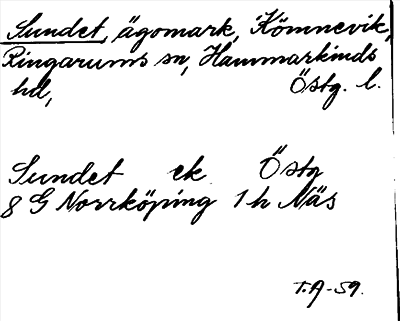 Sundet, ägomark, Kömnevik,
Ringarums sn, Hammarkinds
hd, Östg. l.
Sundet ek. Östg
8 G Norrköping 1 h Näs
T.A-59.